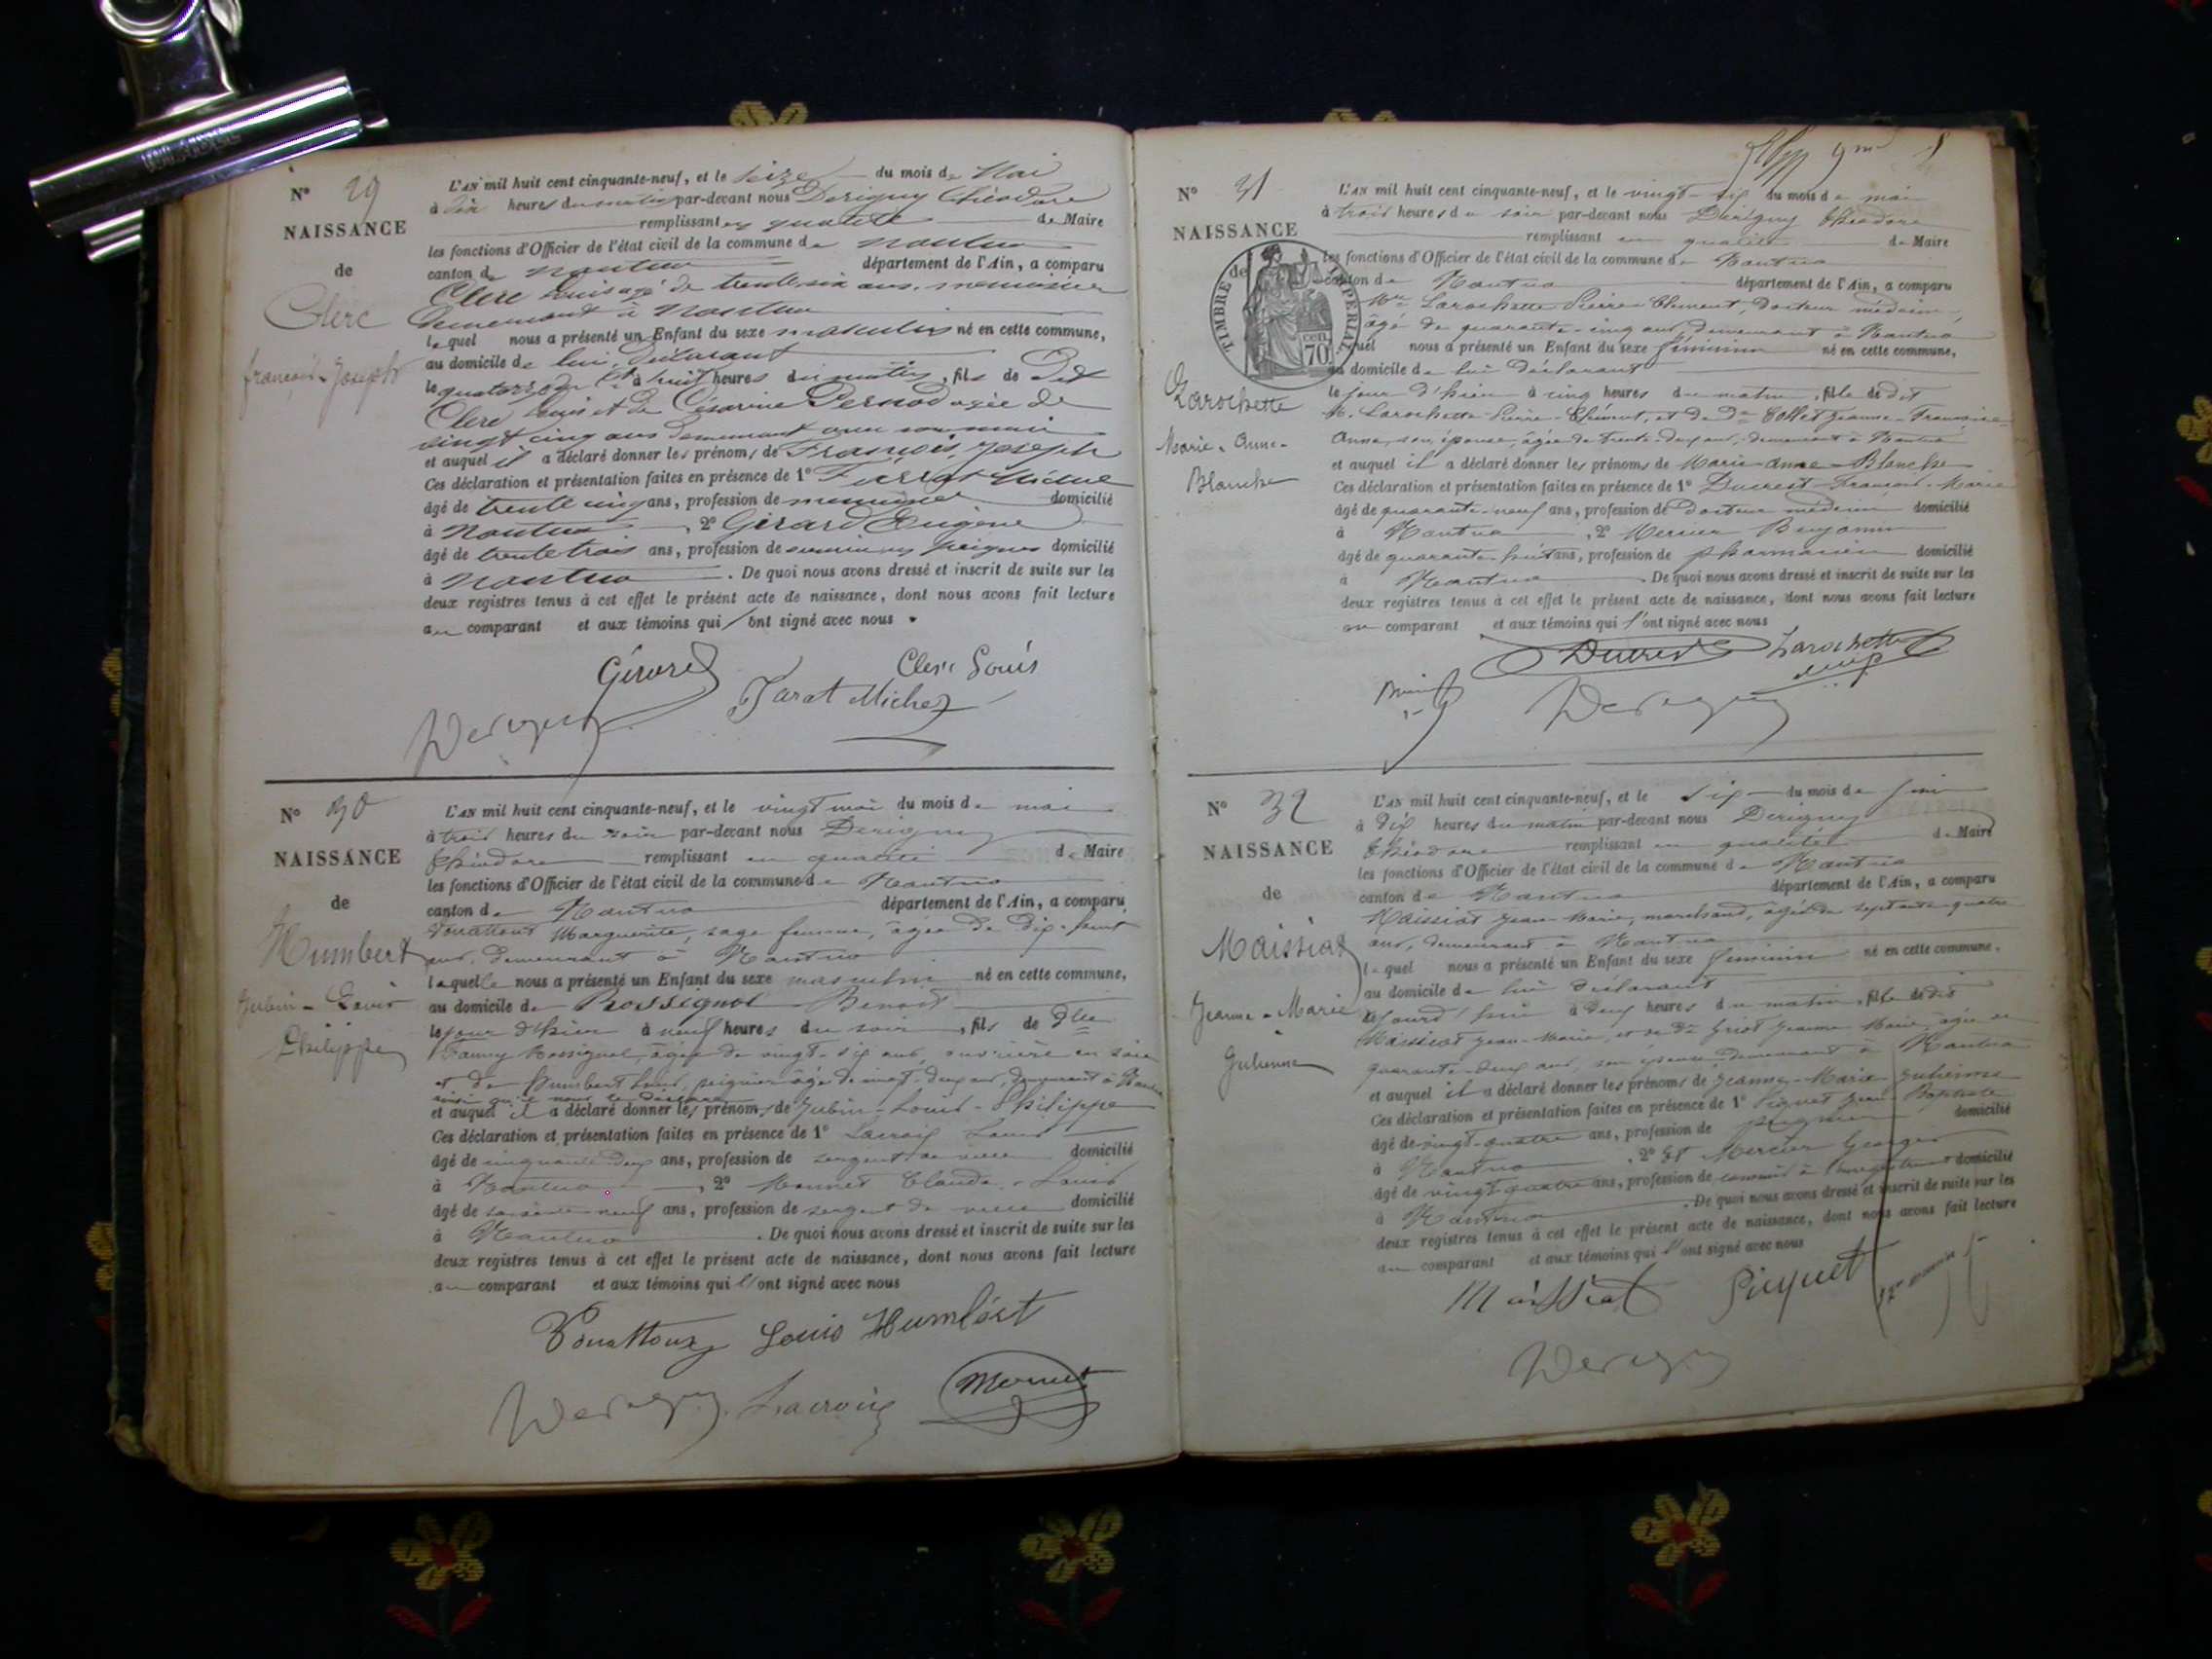 N° 29
NAISSANCE
de
Clerc
françois-Joseph
L'AN mil huit cent cinquante-neuf, et le seize du mois de Mai
à dix heures du matin par-devant nous Derigny Théodore
remplissant en qualité de Maire
les fonctions d'Officier de l'état civil de la commune de Nantua
canton de Nantua département de l'Ain, a comparu
Clerc Louis agé de trente six ans, menuisier
demeurant à Nantua
lequel nous a présenté un Enfant du sexe masculin né en cette commune,
au domicile de lui déclarant
le quatorze du Ct à huit heures du matin, fils de Dit
Clerc Louis et de Césarine Pernod agée de
vingt cinq ans demeurant avec son mari
et auquel il a déclaré donner les prénoms de François Joseph
Ces déclaration et présentation faites en présence de 1°
âgé de trente cinq ans, profession de menuisier domicilié
à Nantua, 2° Girard Eugène
âgé de trente trois ans, profession de peignes domicilié
à Nantua. De quoi nous avons dressé et inscrit de suite sur les
deux registres tenus à cet effet le présent acte de naissance, dont nous avons fait lecture
au comparant et aux témoins qui l'ont signé avec nous.
Girard
Clerc Louis
Tarat Michel
Derigny
N° 30
NAISSANCE
de
Humbert
Jubin-Louis
Philippe
L'AN mil huit cent cinquante-neuf, et le vingt trois du mois de mai
à trois heures du soir par-devant nous Derigny
Théodore remplissant en qualité de Maire
les fonctions d'Officier de l'état civil de la commune de Nantua
canton de Nantua département de l'Ain, a comparu
Marguerite, sage femme, âgée de
ans, demeurant à Nantua
laquelle nous a présenté un Enfant du sexe masculin né en cette commune,
au domicile de Rossignol Benoit
le jour d'hier à neuf heures du soir, fils de Dlle
Fanny Rossignol, âgée de vingt-six ans, ouvrière en soie
et de Humbert Louis, peignier âgé de vingt-deux ans, demeurant à Nantua
ainsi qu'il nous le déclare
et auquel il a déclaré donner les prénoms de Jubin-Louis-Philippe
Ces déclaration et présentation faites en présence de 1° Lacroix Louis
âgé de cinquante deux ans, profession de sergent de ville domicilié
à Nantua, 2° Monnet Claude-Louis
âgé de soixante-neuf ans, profession de sergent de ville domicilié
à Nantua. De quoi nous avons dressé et inscrit de suite sur les
deux registres tenus à cet effet le présent acte de naissance, dont nous avons fait lecture
au comparant et aux témoins qui l'ont signé avec nous
Louis Humbert
Derigny Lacroix Monnet
N° 31
NAISSANCE
de
TIMBRE IMPERIAL
70 cen
Larochette
Marie-Anne-
Blanche
L'AN mil huit cent cinquante-neuf, et le vingt-six du mois de mai
à trois heures du soir par-devant nous Derigny Théodore
remplissant en qualité de Maire
les fonctions d'Officier de l'état civil de la commune de Nantua
canton de Nantua département de l'Ain, a comparu
Mr Larochette Pierre Clément, docteur médecin,
âgé de quarante-cinq ans, demeurant à Nantua
lequel nous a présenté un Enfant du sexe féminin né en cette commune,
au domicile de lui déclarant
le jour d'hier à cinq heures du matin, fille de dit
M. Larochette Pierre-Clément, et de De Collet Jeanne-Françoise-
Anne, son épouse, âgée de trente-deux ans, demeurant à Nantua
et auquel il a déclaré donner les prénoms de Marie-Anne-Blanche
Ces déclaration et présentation faites en présence de 1° Ducrest François-Marie
âgé de quarante-neuf ans, profession de Docteur médecin domicilié
à Nantua, 2° Mercier Benjamin
âgé de quarante-huit ans, profession de pharmacien domicilié
à Nantua. De quoi nous avons dressé et inscrit de suite sur les
deux registres tenus à cet effet le présent acte de naissance, dont nous avons fait lecture
au comparant et aux témoins qui l'ont signé avec nous
Ducrest Larochette
Derigny
N° 32
NAISSANCE
de
Maissiat
Jeanne-Marie
Julienne
L'AN mil huit cent cinquante-neuf, et le six du mois de juin
à dix heures du matin par-devant nous Derigny
Théodore remplissant en qualité de Maire
les fonctions d'Officier de l'état civil de la commune de Nantua
canton de Nantua département de l'Ain, a comparu
Maissiat Jean-Marie, marchand, âgé de septante-quatre
ans, demeurant à Nantua
lequel nous a présenté un Enfant du sexe féminin né en cette commune,
au domicile de lui déclarant
aujourd'hui à deux heures du matin, fille de dit
Maissiat Jean-Marie, et de De Griot Jeanne Marie, âgée de
quarante-deux ans, son épouse, demeurant à Nantua
et auquel il a déclaré donner les prénoms de Jeanne-Marie Julienne
Ces déclaration et présentation faites en présence de 1° Piquet Jean Baptiste
âgé de vingt-quatre ans, profession de domicilié
à Nantua, 2° et Mercier Georges
âgé de vingt-quatre ans, profession de commis à l'enregistrement domicilié
à Nantua. De quoi nous avons dressé et inscrit de suite sur les
deux registres tenus à cet effet le présent acte de naissance, dont nous avons fait lecture
au comparant et aux témoins qui l'ont signé avec nous
Maissiat Piquet
Derigny